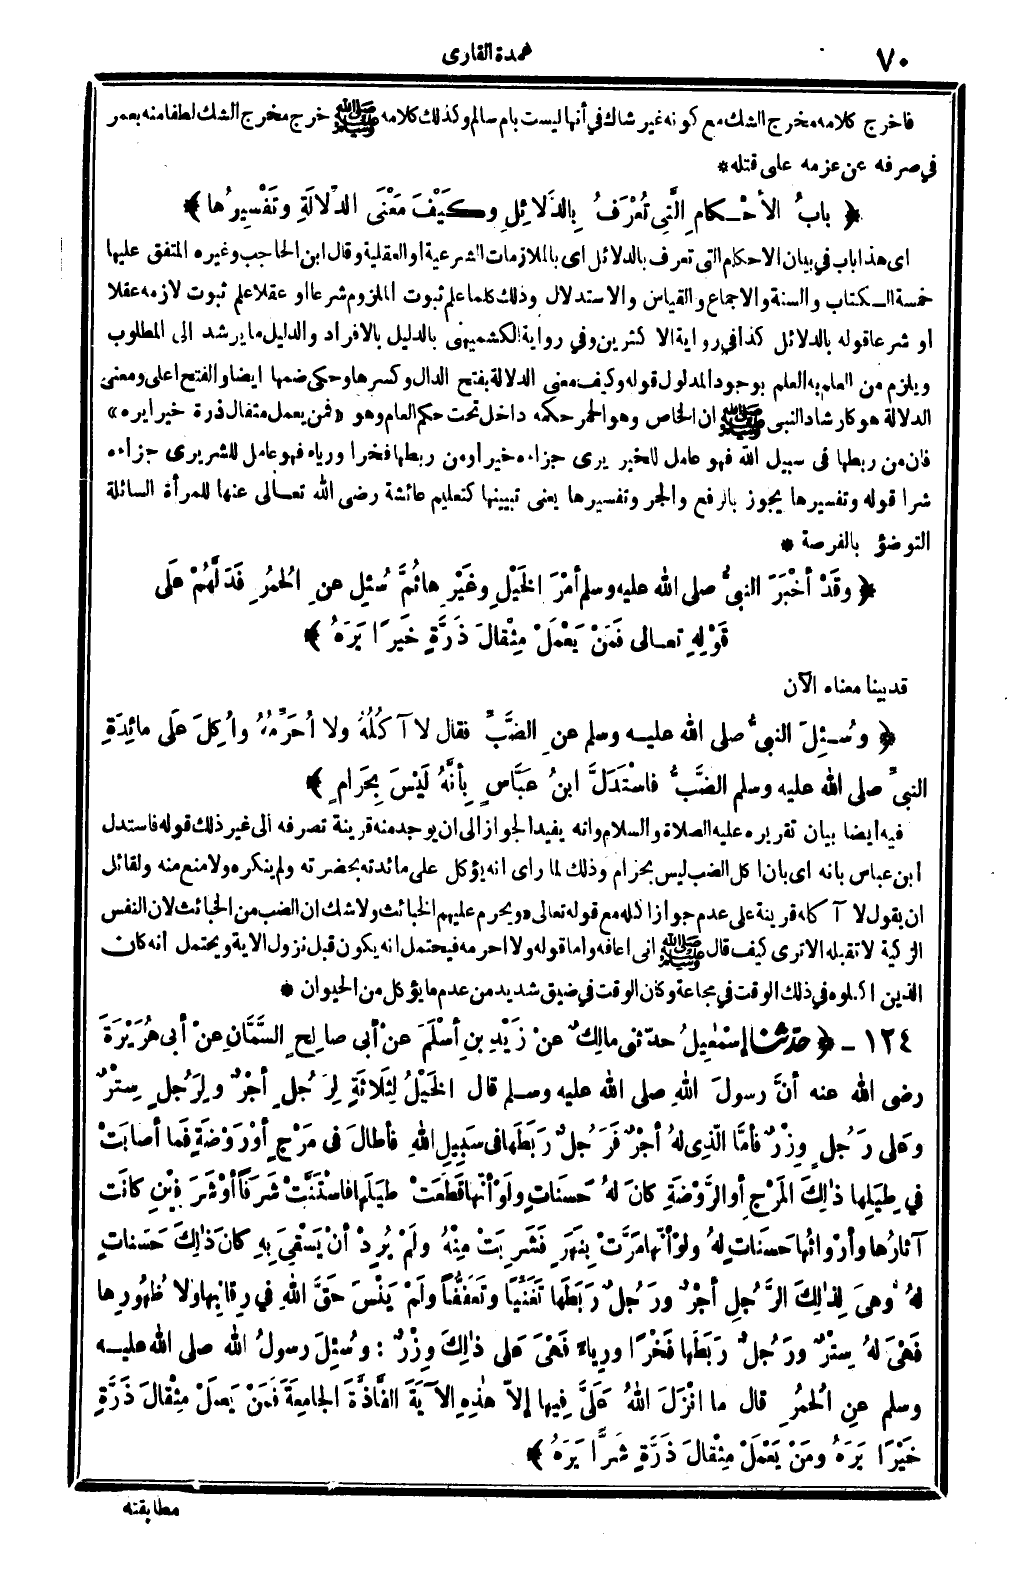 ٧٠
عمدة القارى
فاخرج كلامه مخرج الشك مع كونه غير شاك في أنها ليست بام سالم وكذلك كلامه ﷺ خرج مخرج الشك لطفا منه بعمر
في صرفه عن عزمه على قتله *
﴿ بابُ الأحْكامِ الَّتِي تُعْرَفُ بِالدَّلائِلِ وكَيْفَ مَعْنَى الدِّلالَةِ وتَفْسِيرُها ﴾
اى هذا باب في بيان الاحكام التى تعرف بالدلائل اى بالملازمات الشرعية او العقلية وقال ابن الحاجب وغيره المتفق عليها
خمسة الكتاب والسنة والاجماع والقياس والاستدلال وذلك كلما علم ثبوت الملزوم شرعا او عقلا علم ثبوت لازمه عقلا
او شرعا قوله بالدلائل كذا في رواية الاكثرين وفي رواية الكشميهنى بالدليل بالافراد والدليل ما يرشد الى المطلوب
ويلزم من العلم به العلم بوجود المدلول قوله وكيف معنى الدلالة بفتح الدال وكسرها وحكى ضمها ايضا والفتح اعلى ومعنى
الدلالة هو كارشاد النبى ﷺ ان الخاص وهو الحمر حكمه داخل تحت حكم العام وهو «فمن يعمل مثقال ذرة خيرا يره»
فان من ربطها فى سبيل الله فهو عامل للخير يرى جزاءه خيرا ومن ربطها فخرا ورياء فهو عامل للشر يرى جزاءه
شرا قوله وتفسيرها يجوز بالرفع والجر وتفسيرها يعنى تبيينها كتعليم عائشة رضى الله تعالى عنها للمرأة السائلة
التوضؤ بالفرصة *
﴿ وقَدْ أخْبَرَ النبيُّ صلى الله عليه وسلم أمْرَ الخَيْلِ وغَيْرِها ثُمَّ سُئِلَ عنِ الحُمُرِ فَدَلَّهُمْ عَلَى
قَوْلِهِ تعالى فَمَنْ يَعْمَلْ مِثْقالَ ذَرَّةٍ خَيرًا يَرَهُ ﴾
قد بينا معناه الآن
﴿ وسُئِلَ النبيُّ صلى الله عليه وسلم عنِ الضَّبِّ فقال لا آكُلُهُ ولا أُحَرِّمُهُ وأُكِلَ عَلَى مائِدَةِ
النبيِّ صلى الله عليه وسلم الضَّبُّ فاسْتَدَلَّ ابنُ عَبَّاسٍ بِأنَّهُ لَيْسَ بِحَرامٍ ﴾
فيه ايضا بيان تقريره عليه الصلاة والسلام وانه يفيد الجواز الى ان يوجد منه قرينة تصرفه الى غير ذلك قوله فاستدل
ابن عباس بانه اى بان اكل الضب ليس بحرام وذلك لما راى انه يؤكل على مائدته بحضرته ولم ينكره ولا منع منه ولقائل
ان يقول لا آكله قرينة على عدم جواز اكله مع قوله تعالى «ويحرم عليهم الخبائث» ولا شك ان الضب من الخبائث لان النفس
الزكية لا تقبله الا ترى كيف قال ﷺ انى اعافه واما قوله ولا احرمه فيحتمل انه يكون قبل نزول الاية ويحتمل أنه كان
الذين اكلوه في ذلك الوقت في مجاعة وكان الوقت في ضيق شديد من عدم ما يؤكل من الحيوان *
١٢٤ - ﴿ حدّثنا إسْمٰعِيلُ حدّثني مالِكٌ عنْ زَيْدِ بنِ أسْلَمَ عنْ أبى صالِحٍ السَّمَّانِ عنْ أبى هُرَيْرَةَ
رضى الله عنه أنَّ رسولَ اللهِ صلى الله عليه وسلم قال الخَيْلُ لِثَلاثَةٍ لِرَجُلٍ أجْرٌ ولِرَجُلٍ سِتْرٌ
وعَلى رَجُلٍ وِزْرٌ فأمَّا الَّذِى لهُ أجْرٌ فَرَجُلٌ رَبَطَها فى سَبِيلِ اللهِ فأطالَ فى مَرْجٍ أوْ رَوْضَةٍ فَما أصابَتْ
في طِيَلِها ذٰلِكَ المَرْجِ أوِ الرَّوْضَةِ كانَ لهُ حَسَناتٍ ولَوْ أنَّها قَطَعَتْ طِيَلَها فاسْتَنَّتْ شَرَفًا أوْ شَرَفَيْنِ كانَتْ
آثارُها وأرْواثُها حَسَناتٍ لهُ ولوْ أنَّها مَرَّتْ بِنَهَرٍ فَشَرِبَتْ مِنْهُ ولَمْ يُرِدْ أنْ يَسْقِيَ بِهِ كانَ ذٰلِكَ حَسَناتٍ
لهُ وهىَ لِذٰلِكَ الرَّجُلِ أجْرٌ ورَجُلٌ رَبَطَها تَغَنِّيًا وتَعَفُّفًا ولَمْ يَنْسَ حَقَّ اللهِ في رِقابِها ولا ظُهُورِها
فَهْىَ لهُ سِتْرٌ ورَجُلٌ رَبَطَها فَخْرًا ورِياءً فَهْىَ عَلى ذٰلِكَ وِزْرٌ : وسُئِلَ رسولُ الله صلى الله عليه
وسلم عنِ الحُمُرِ قال ما أنْزَلَ اللهُ عَلَيَّ فِيها إلاّ هٰذِهِ الآيَةَ الفاذَّةَ الجامِعَةَ فَمَنْ يَعمَلْ مِثْقالَ ذَرَّةٍ
خَيْرًا يَرَهُ ومَنْ يَعْمَلْ مِثْقالَ ذَرَّةٍ شَرًّا يَرَهُ ﴾
مطابقته